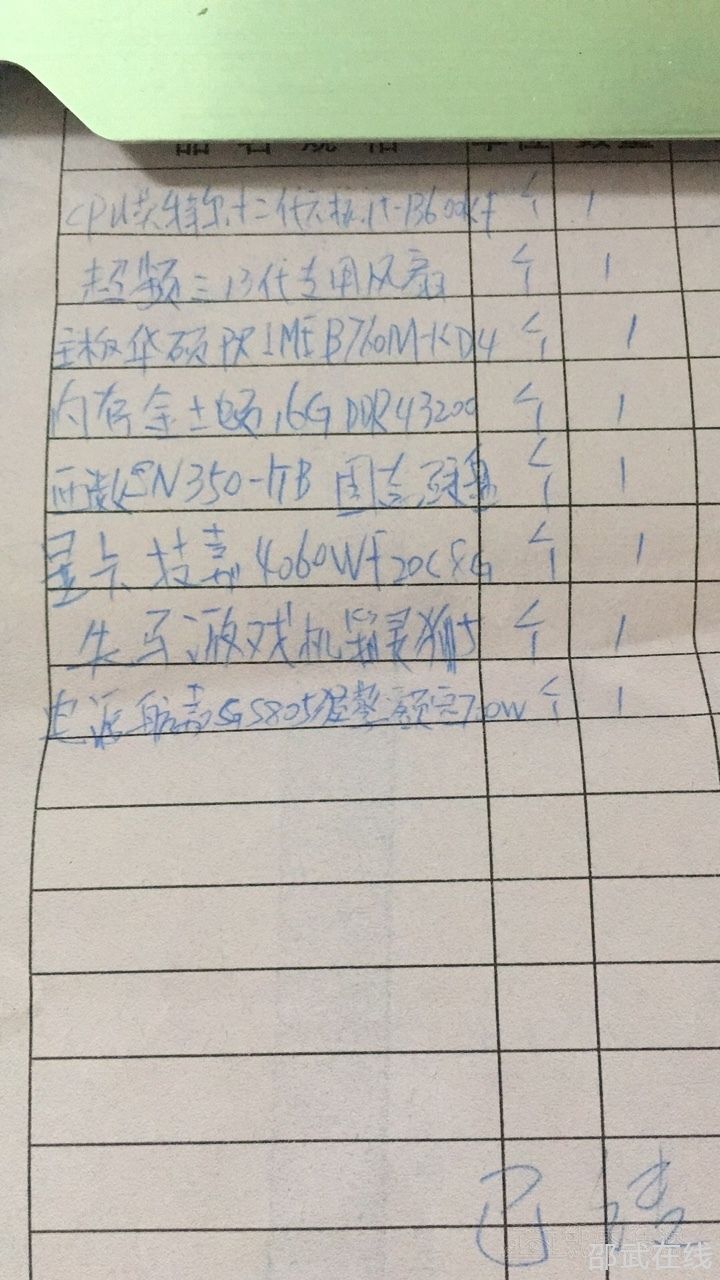 品名规格 单位 数量
CPU英特尔十二代六核i5-13600KF 个 1
超频三13代专用风扇 个 1
主板华硕PRIME B760M-K D4 个 1
内存金士顿16G DDR43200 个 1
西数SN350-1TB 固态硬盘 个 1
显卡技嘉4060WF2OC8G 个 1
先马游戏机箱 5 个 1
电源航嘉GS805 额定 W 个 1
已
邵武在线